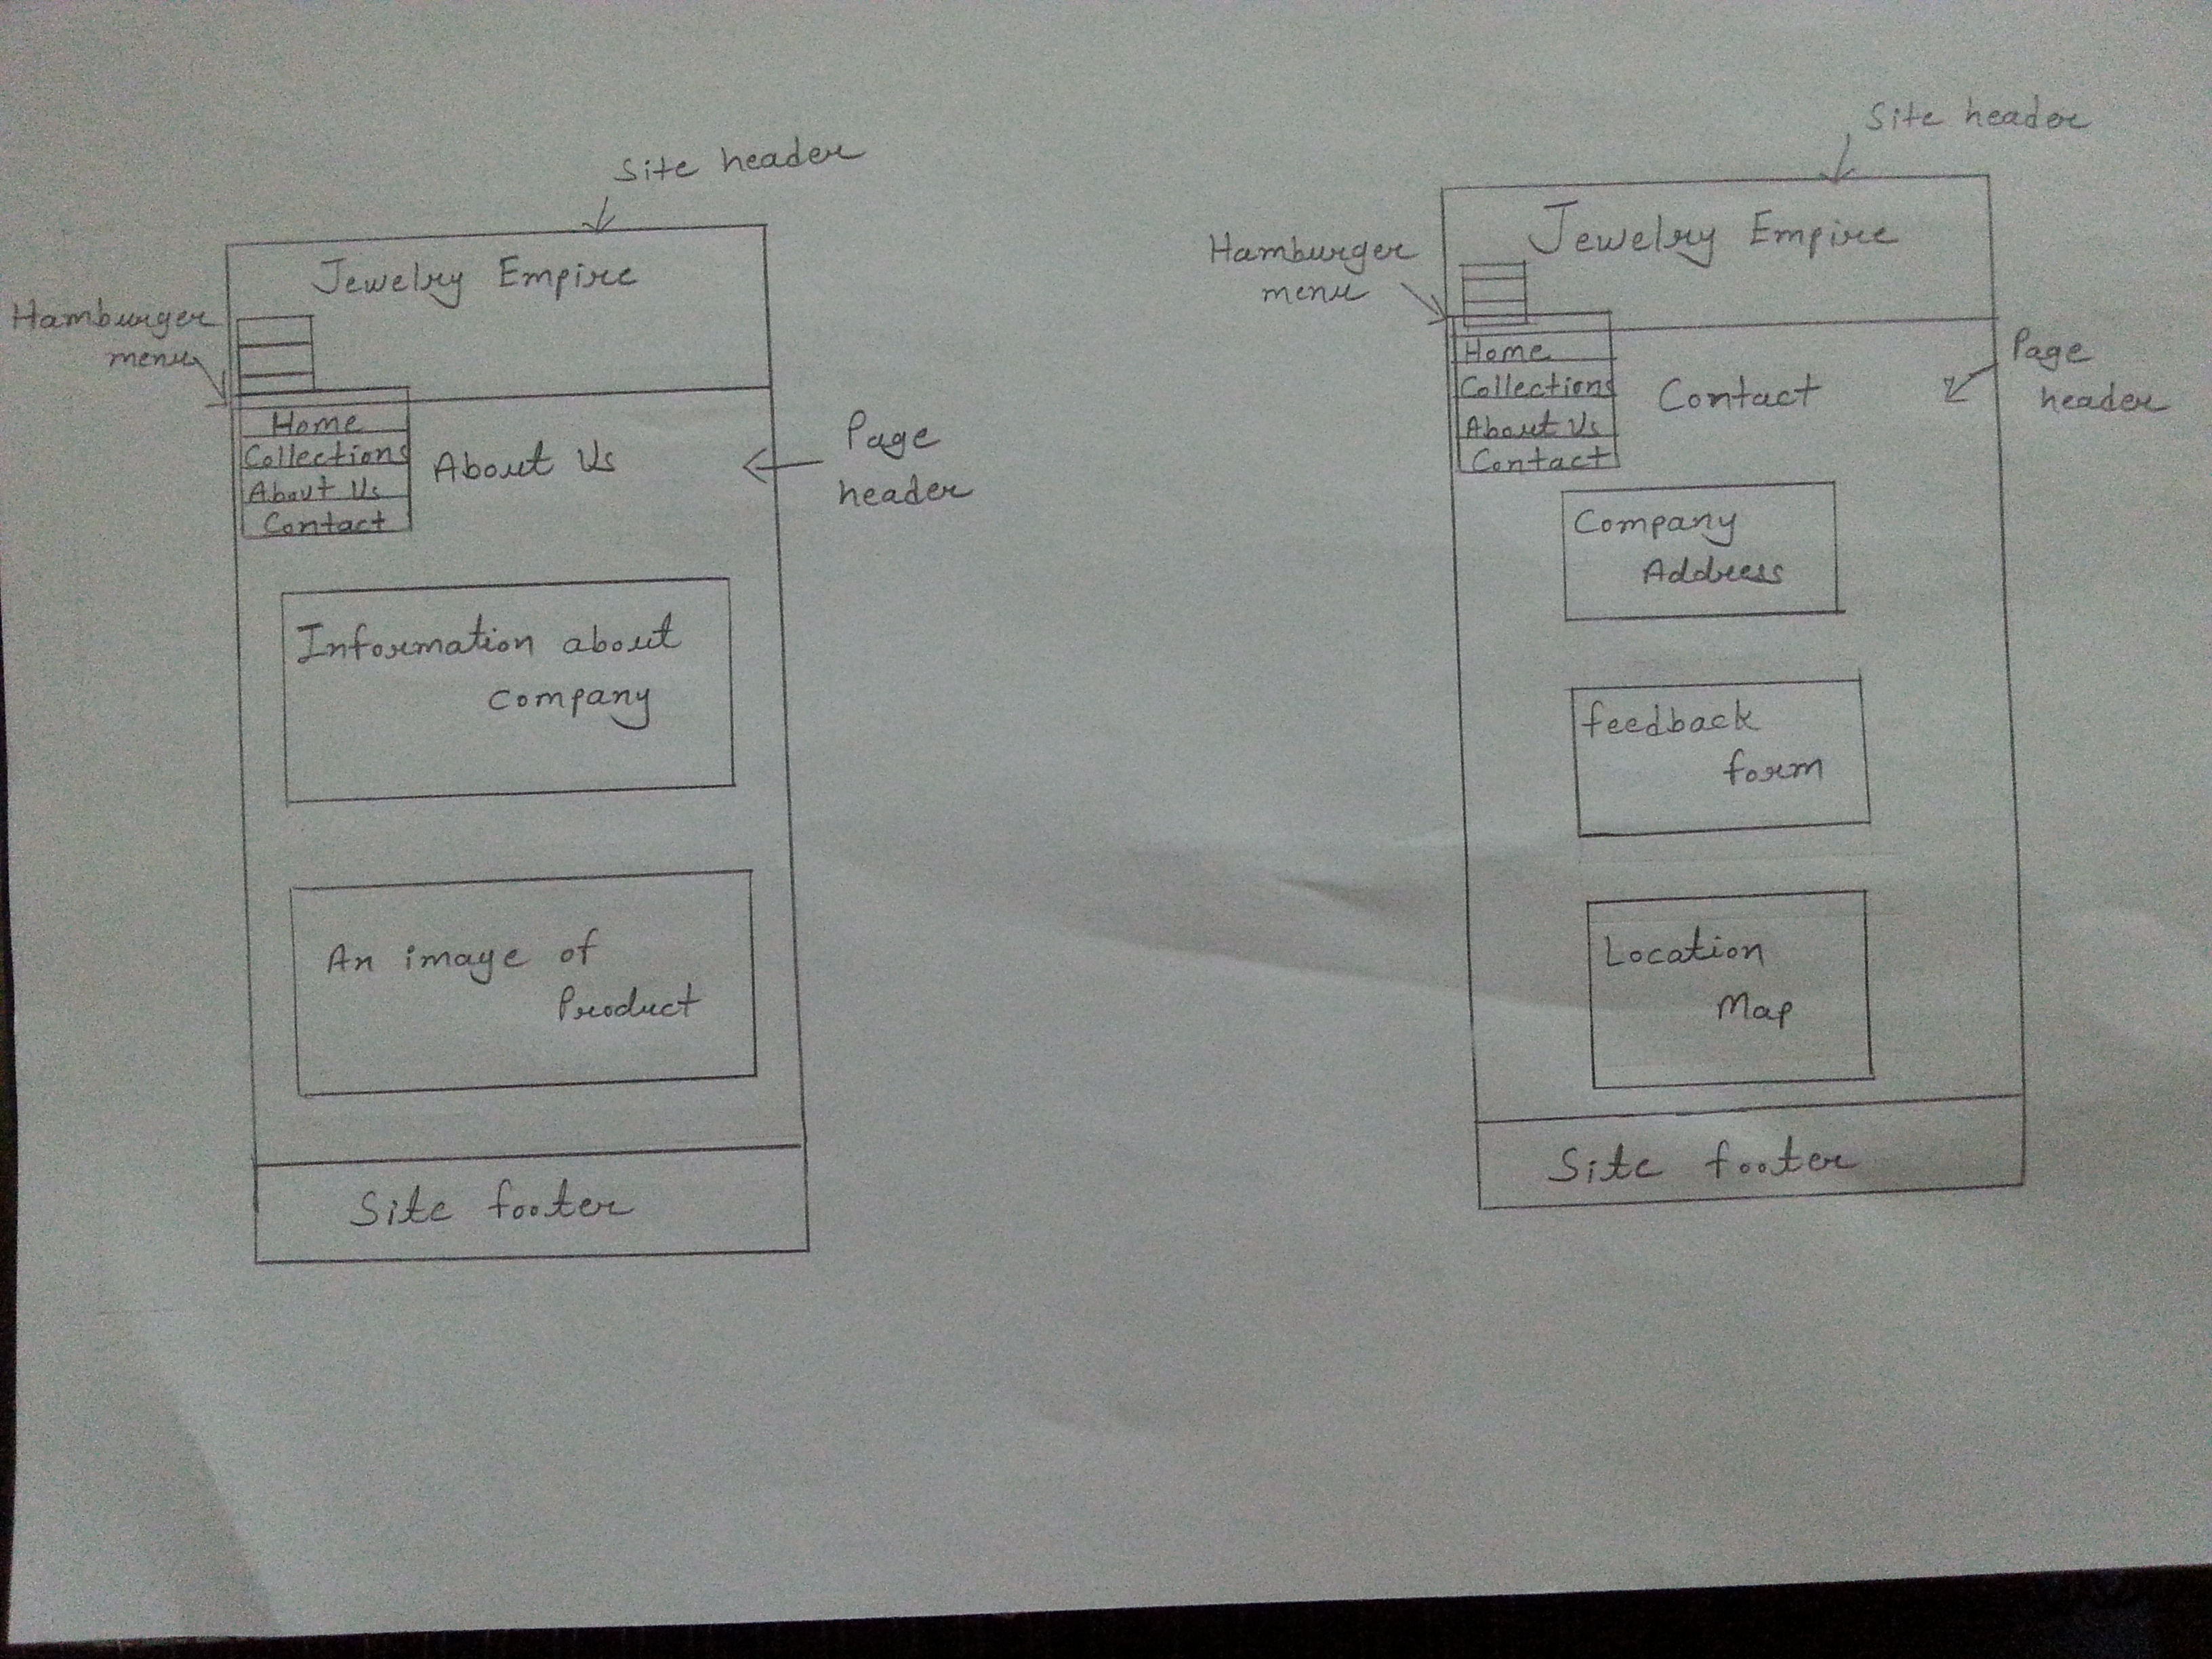 Site header
Jewelry Empire
Hamburger
menu
Home
Collections
About Us
Contact
About Us
Page
header
Information about
company
An image of
Product
Site footer
Site header
Jewelry Empire
Hamburger
menu
Home
Collections
About Us
Contact
Contact
Page
header
Company
Address
feedback
form
Location
Map
Site footer